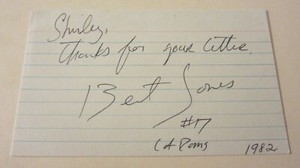 Shirley,
Thanks for your letter.
Bert Jones
#17
LA Rams
1982